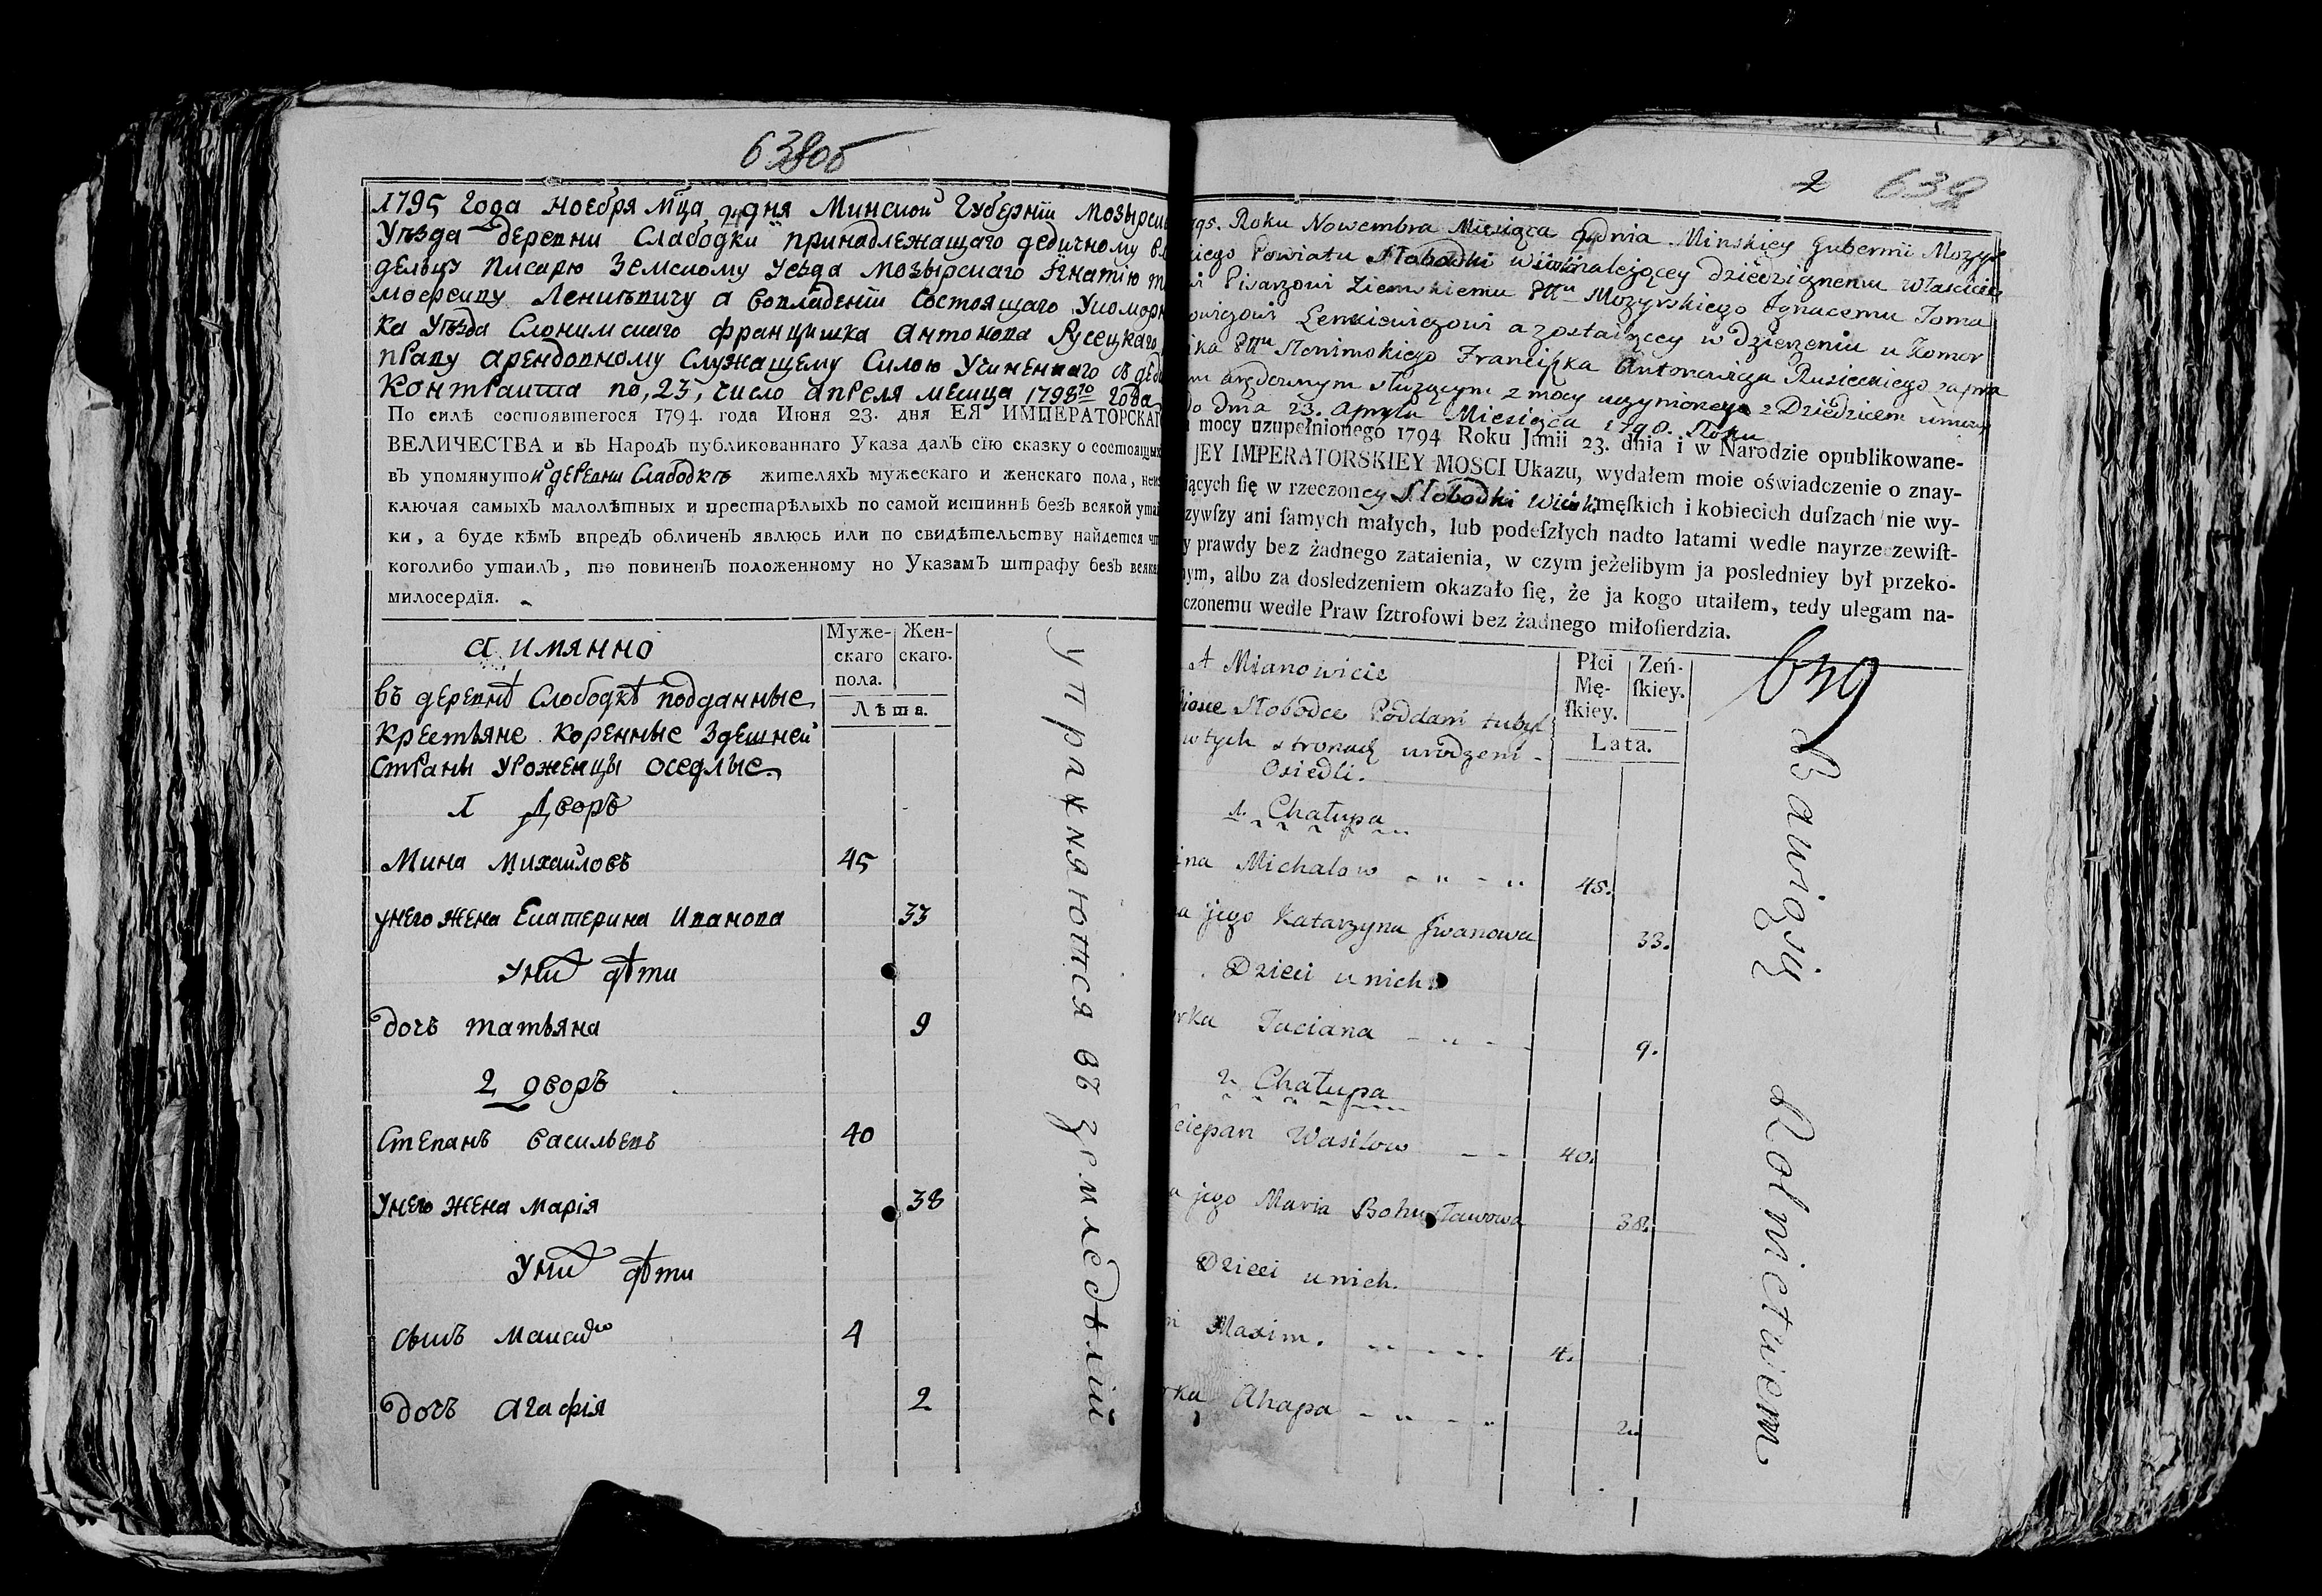 638об
1795 Года Ноебря Мца 24 дня Минской Губернïи Мозырск
Уезда деревни Слабодки принадлежащаго дедичному вла
дельцу Писарю Земскому Уезда Мозырскаго Игнатïю
Ленкевичу а во владенïи состоящаго Укоморн
ка Уезда Слонимскаго Францишка Антонова Русецкаго
праву арендовному служащему Силою Учиненнаго
контракта по, 23, число апреля месица 1798го года
По силѣ состоявшегося 1794. года Июня 23. дня ЕЯ ИМПЕРАТОРСКАГ
ВЕЛИЧЕСТВА и въ Народъ публикованнаго Указа далъ сïю сказку о состоящих
въ упомянутой деревни Слабодкѣ жителяхъ мужескаго и женскаго пола, неис
ключая самыхъ малолѣтныхъ и престарѣлыхъ по самой истиннѣ безъ всякой утай
ки, а буде кѣмъ впредъ обличенъ явлюсь или по свидѣтельству найдется чт
коголибо утаилъ, то повиненъ положенному по Указамъ штрафу безъ всяка
милосердïя.
а имянно
Муже-
скаго
пола.
Жен-
скаго.
Лѣта.
въ деревнѣ Слободкѣ подданные
крестьяне коренные здешней
страны уроженцы оседлые
1 Дворъ
Мина Михайловъ 45
унего жена Екатерина Иванова 33
Уних дѣти
дочъ татьяна 9
2 дворъ
Степанъ васильевъ 40
Унего жена марïя 38
Уних дѣти
сынъ Максим 4
дочъ агафïя 2
упражняются въ земледѣлïй
2 639
Roku Nowembra Miesiąca 24 dnia Minskiey Gubernii Mozyr
kiego Powiatu Słobodki należącey dziedzicznemu właścicie
Pisarzowi Ziemskiemu Pttu Mozyrskiego Ignacemu Toma
owiczowi Lenkiewiczowi a zostaiącey w dzierzeniu u Komor
ika Pttu Słonimskiego Franciszka Antonowicza Rusieckiego za pra
arędownym służącym z mocy uczynionego z Dziedzicem umowy
do dnia 23. Apryla Miesiąca 1798. Roku
mocy uzupełnionego 1794 Roku Junii 23. dnia i w Narodzie opublikowane-
JEY IMPERATORSKIEY MOSCI Ukazu, wydałem moie oświadczenie o znay-
iących ſię w rzeczoney Słobodki męſkich i kobiecich duſzach nie wy-
zywſzy ani ſamych małych, lub podeſzłych nadto latami wedle nayrzeczewiſt-
y prawdy bez żadnego zataienia, w czym jeżelibym ja posledniey był przeko-
nym, albo za dosledzeniem okazało ſię, że ja kogo utaiłem, tedy ulegam na-
czonemu wedle Praw ſztrofowi bez żadnego miłoſierdzia.
A Mianowicie
Płci
Mę-
ſkiey.
Żeń-
ſkiey.
Lata.
639
Słobodce Poddani tubyl
w tych stronach urodzeni
Osiedli.
1. Chałupa
ina Michalow 45.
a jego Katarzyna Jwanowa 33.
Dzieci u nich
rka Taciana 9.
2. Chałupa
Sciepan Wasilow 40.
a jego Maria Bohusławowa 38.
Dzieci u nich.
n Maxim. 4.
rka Ahapa 2.
Bawiąsię Rolnictwem